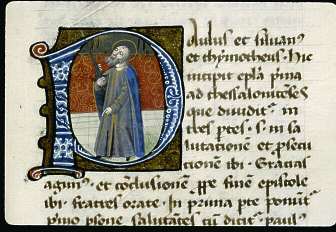 Paulus et siluan(us)
et thymotheus · hic
incipit epl̄a p̄ima
ad thessalonicēses
que diuidit' in
tres ptes · s · in sa
lutatione et p̱secu
tionē ibi · Gracias
agim' · et cōclusionē ꝓpe finē epistole
ibi · fratres orate · In prima pte ponit'
p̄mo psone salutātes cū dicit' paul'